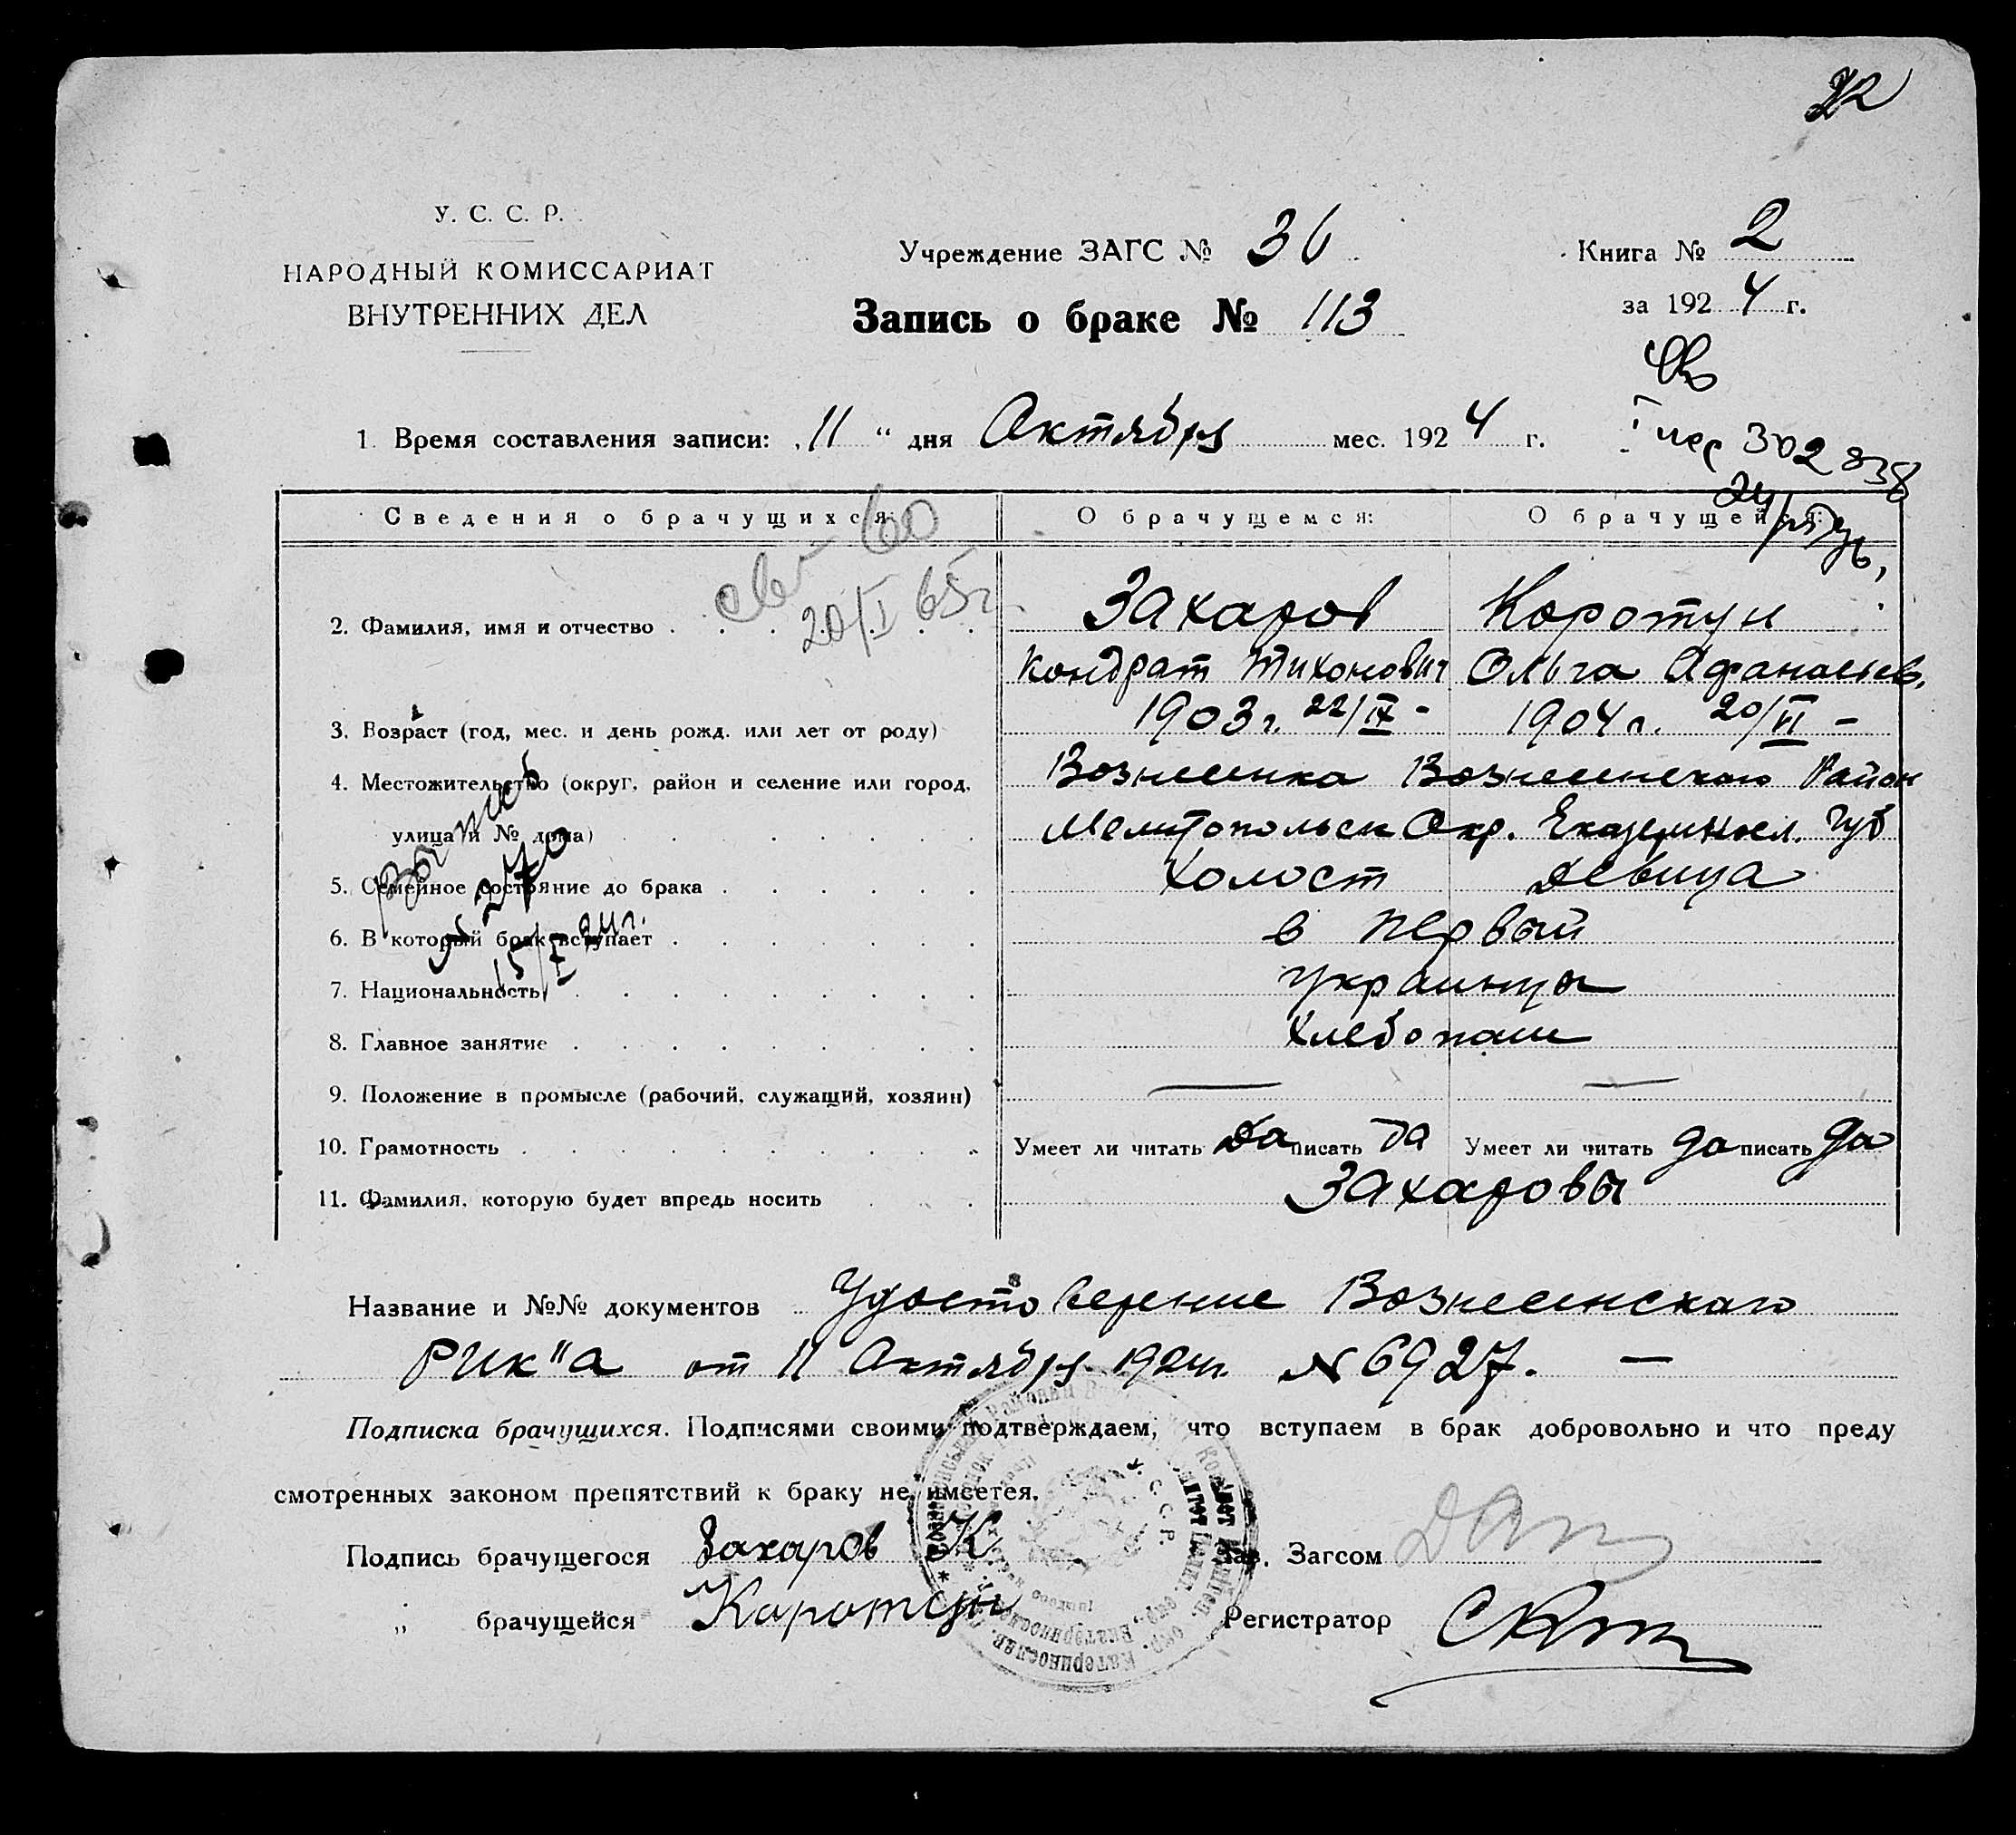 У. С. С. Р.
НАРОДНЫЙ КОМИССАРИАТ
ВНУТРЕННИХ ДЕЛ
Учреждение ЗАГС № 36
Книга № 2
за 1924 г.
Запись о браке № 113
1. Время составления записи: „11“ дня Октября мес. 1924 г.
302838
Сведения о брачущихся: О брачущемся: О брачущейся:
60
20/I 65г
2. Фамилия, имя и отчество Захаров Коротун
Кондрат Тихонович Ольга Афанасьев.
3. Возраст (год, мес. и день рожд. или лет от роду) 1903г. 22/IX - 1904г. 20/VI -
4. Местожительство (округ, район и селение или город, Вознесенка Вознесенского Район
улица и № дома) Мелитопольск Окр. Екатериносл. Губ
5. Семейное состояние до брака холост девица
6. В который брак вступает в первый
7. Национальность украинцы
8. Главное занятие хлебопаш
9. Положение в промысле (рабочий, служащий, хозяин) — —
10. Грамотность Умеет ли читать да писать да Умеет ли читать да писать да
11. Фамилия, которую будет впредь носить Захаровы
Название и №№ документов Удостоверение Вознесенскаго
РИК"а от 11 Октября 1924г. № 6927. —
Подписка брачущихся. Подписями своими подтверждаем, что вступаем в брак добровольно и что преду
смотренных законом препятствий к браку не имеется.
Подпись брачущегося Захаров К
Зав. Загсом
„ брачущейся Коротун
Регистратор